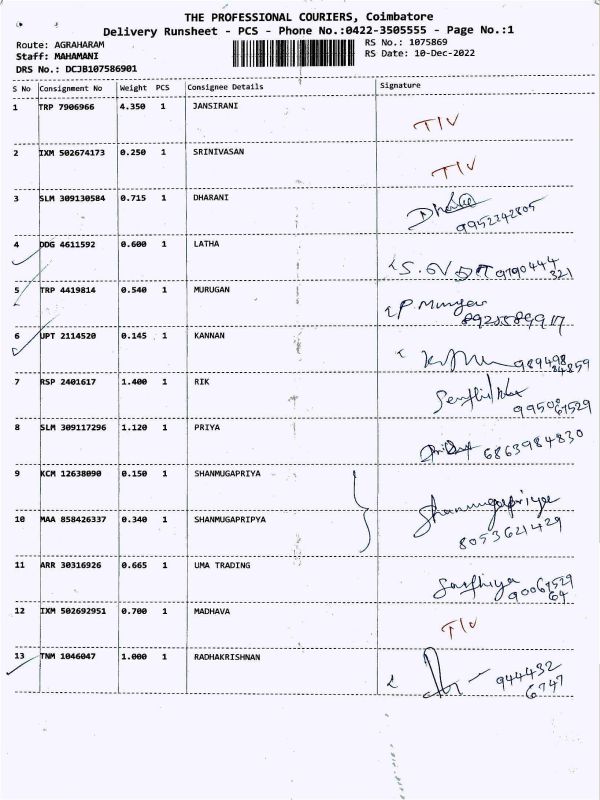 THE PROFESSIONAL COURIERS, Coimbatore
Delivery Runsheet - PCS - Phone No.:0422-3505555 - Page No.:1
Route: AGRAHARAM RS No.: 1075869
Staff: MAHAMANI RS Date: 10-Dec-2022
DRS No.: DCJB107586901
S No Consignment No Weight PCS Consignee Details Signature
1 TRP 7906966 4.350 1 JANSIRANI
T/V
2 IXM 502674173 0.250 1 SRINIVASAN
T/V
3 SLM 309130584 0.715 1 DHARANI
9952242805
4 DDG 4611592 0.600 1 LATHA
9790444
321
5 TRP 4419814 0.540 1 MURUGAN
P. Murugan
6 UPT 2114520 0.145 1 KANNAN
989498
7 RSP 2401617 1.400 1 RIK
99500
67529
8 SLM 309117296 1.120 1 PRIYA
6863984830
9 KCM 12638090 0.150 1 SHANMUGAPRIYA
Shanmugapriya
10 MAA 858426337 0.340 1 SHANMUGAPRIPYA
8053621429
11 ARR 30316926 0.665 1 UMA TRADING
12 IXM 502692951 0.700 1 MADHAVA
T/V
13 TNM 1046047 1.000 1 RADHAKRISHNAN
944432
6747